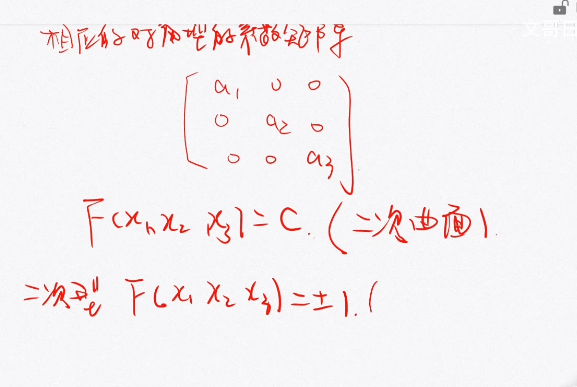 文哥日
相应的对角型的系数矩阵
a₁ 0 0
0 a₂ 0
0 0 a₃
F(x₁, x₂, x₃) = C. (二次曲面).
二次型 F(x₁ x₂ x₃) = ±1. (